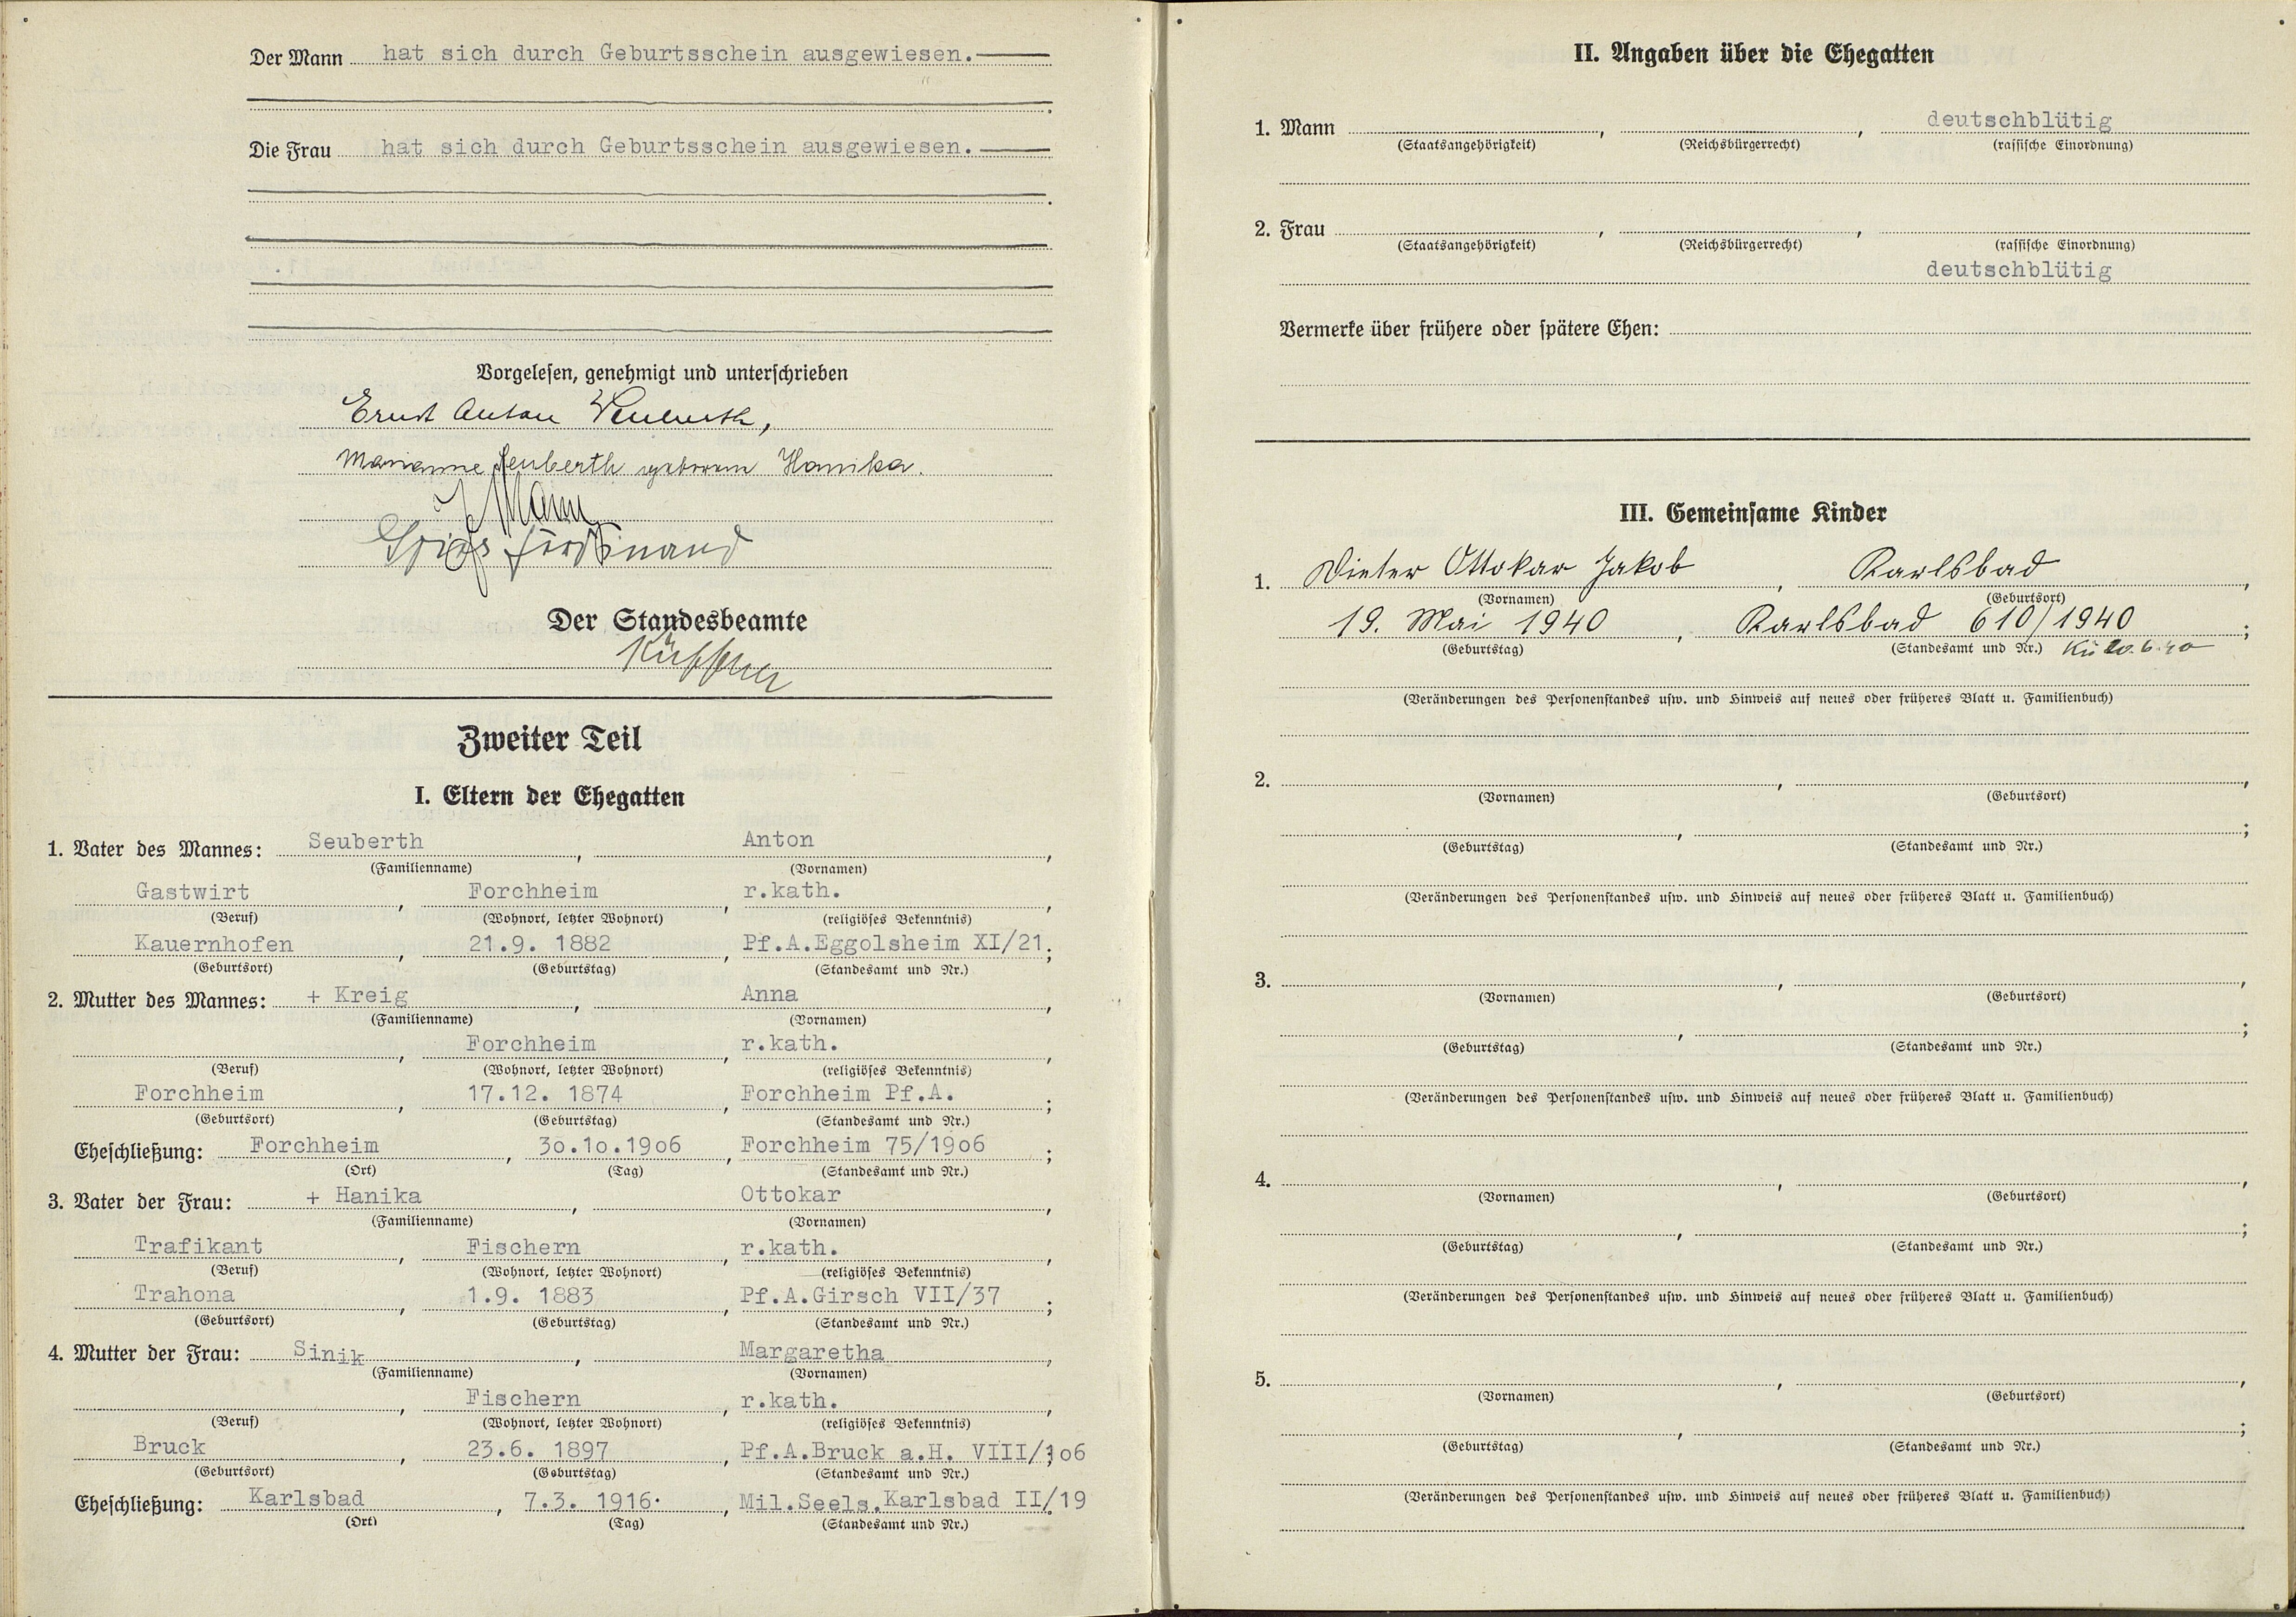 Der Mann hat sich durch Geburtsschein ausgewiesen.
Die Frau hat sich durch Geburtsschein ausgewiesen.
Vorgelesen, genehmigt und unterschrieben
Ernst Anton Seuberth,
Marianne Seuberth geborene Hanika.
J Mann
Ferdinand
Der Standesbeamte
Zweiter Teil
I. Eltern der Ehegatten
1. Vater des Mannes: Seuberth, Anton,
(Familienname) (Vornamen)
Gastwirt, Forchheim, r.kath.,
(Beruf) (Wohnort, letzter Wohnort) (religiöses Bekenntnis)
Kauernhofen, 21.9. 1882, Pf.A.Eggolsheim XI/21;
(Geburtsort) (Geburtstag) (Standesamt und Nr.)
2. Mutter des Mannes: + Kreig, Anna,
(Familienname) (Vornamen)
, Forchheim, r.kath.,
(Beruf) (Wohnort, letzter Wohnort) (religiöses Bekenntnis)
Forchheim, 17.12. 1874, Forchheim Pf.A. ;
(Geburtsort) (Geburtstag) (Standesamt und Nr.)
Eheschließung: Forchheim, 3o.1o.19o6, Forchheim 75/19o6 ;
(Ort) (Tag) (Standesamt und Nr.)
3. Vater der Frau: + Hanika, Ottokar,
(Familienname) (Vornamen)
Trafikant, Fischern, r.kath.,
(Beruf) (Wohnort, letzter Wohnort) (religiöses Bekenntnis)
Trahona, 1.9. 1883, Pf.A.Girsch VII/37 ;
(Geburtsort) (Geburtstag) (Standesamt und Nr.)
4. Mutter der Frau: Sinik, Margaretha,
(Familienname) (Vornamen)
, Fischern, r.kath.,
(Beruf) (Wohnort, letzter Wohnort) (religiöses Bekenntnis)
Bruck, 23.6. 1897, Pf.A.Bruck a.H. VIII/1o6
(Geburtsort) (Geburtstag) (Standesamt und Nr.)
Eheschließung: Karlsbad, 7.3. 1916., Mil.Seels.Karlsbad II/19
(Ort) (Tag) (Standesamt und Nr.)
II. Angaben über die Ehegatten
1. Mann , , deutschblütig
(Staatsangehörigkeit) (Reichsbürgerrecht) (rassische Einordnung)
2. Frau , ,
(Staatsangehörigkeit) (Reichsbürgerrecht) (rassische Einordnung)
deutschblütig
Vermerke über frühere oder spätere Ehen:
III. Gemeinsame Kinder
1. Dieter Ottokar Jakob, Karlsbad,
(Vornamen) (Geburtsort)
19. Mai 1940, Karlsbad 610/1940 ;
(Geburtstag) (Standesamt und Nr.) Kü 20.6.40
(Veränderungen des Personenstandes usw. und Hinweis auf neues oder früheres Blatt u. Familienbuch)
2. , ,
(Vornamen) (Geburtsort)
, ;
(Geburtstag) (Standesamt und Nr.)
(Veränderungen des Personenstandes usw. und Hinweis auf neues oder früheres Blatt u. Familienbuch)
3. , ,
(Vornamen) (Geburtsort)
, ;
(Geburtstag) (Standesamt und Nr.)
(Veränderungen des Personenstandes usw. und Hinweis auf neues oder früheres Blatt u. Familienbuch)
4. , ,
(Vornamen) (Geburtsort)
, ;
(Geburtstag) (Standesamt und Nr.)
(Veränderungen des Personenstandes usw. und Hinweis auf neues oder früheres Blatt u. Familienbuch)
5. , ,
(Vornamen) (Geburtsort)
, ;
(Geburtstag) (Standesamt und Nr.)
(Veränderungen des Personenstandes usw. und Hinweis auf neues oder früheres Blatt u. Familienbuch)